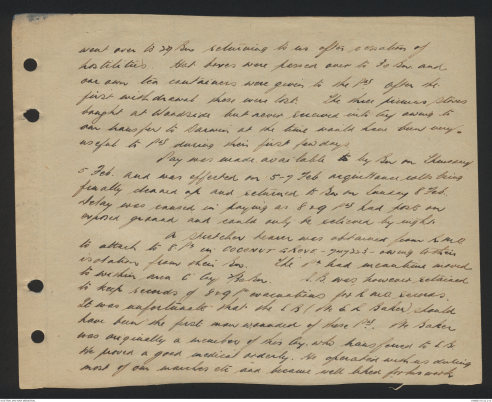 went over to 29 Bn returning to us after cessation of
hostilities. Hat boxes were passed over to 30 Bn and
our own tea containers were given to the Pls after the
first withdrawal those were lost. The three primus stoves
bought at Woodside but never received into Coy owing to
our transfer to Darwin at the time would have been very
useful to Pls during their first few days
Pay was made available to by Bn on Thursday
5 Feb. and was effected on 5-7 Feb acquittance rolls being
finally cleaned up and returned to Bn on Sunday 8 Feb.
Delay was caused in paying as 8 & 9 Pls had posts on
exposed ground and could only be relieved by night
A stretcher bearer was obtained from RMO
to attach to 8 Pl in COCONUT GROVE owing to their
isolation from their Bn. The Pl had meantime moved
to within area to Coy Bn. S.B was however retained
to keep records of 8 & 9 Pl evacuations for RMO records.
It was unfortunate that the S B (Pte G L Baker) should
have been the first man wounded of these Pls. Pte Baker
was originally a member of this Coy, who transferred to S B
He proved a good medical orderly. He operated with us during
most of our marches etc and became well liked for his work